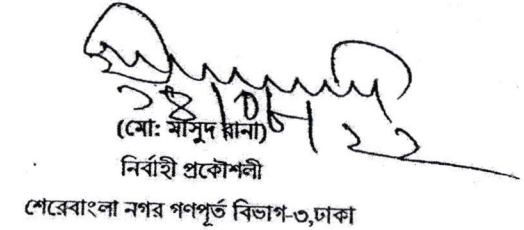 (মো: মাসুদ রানা)
নির্বাহী প্রকৌশলী
শেরেবাংলা নগর গণপূর্ত বিভাগ-৩,ঢাকা